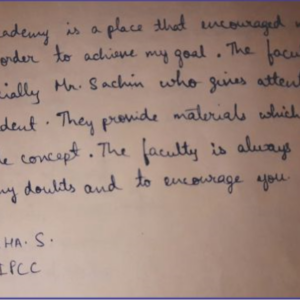 cademy is a place that encouraged
order to achieve my goal. The facu
cially Mr. Sachin who gives atten
dent. They provide materials which
e concept. The faculty is always
ny doubts and to encourage you.
HA. S.
IPCC